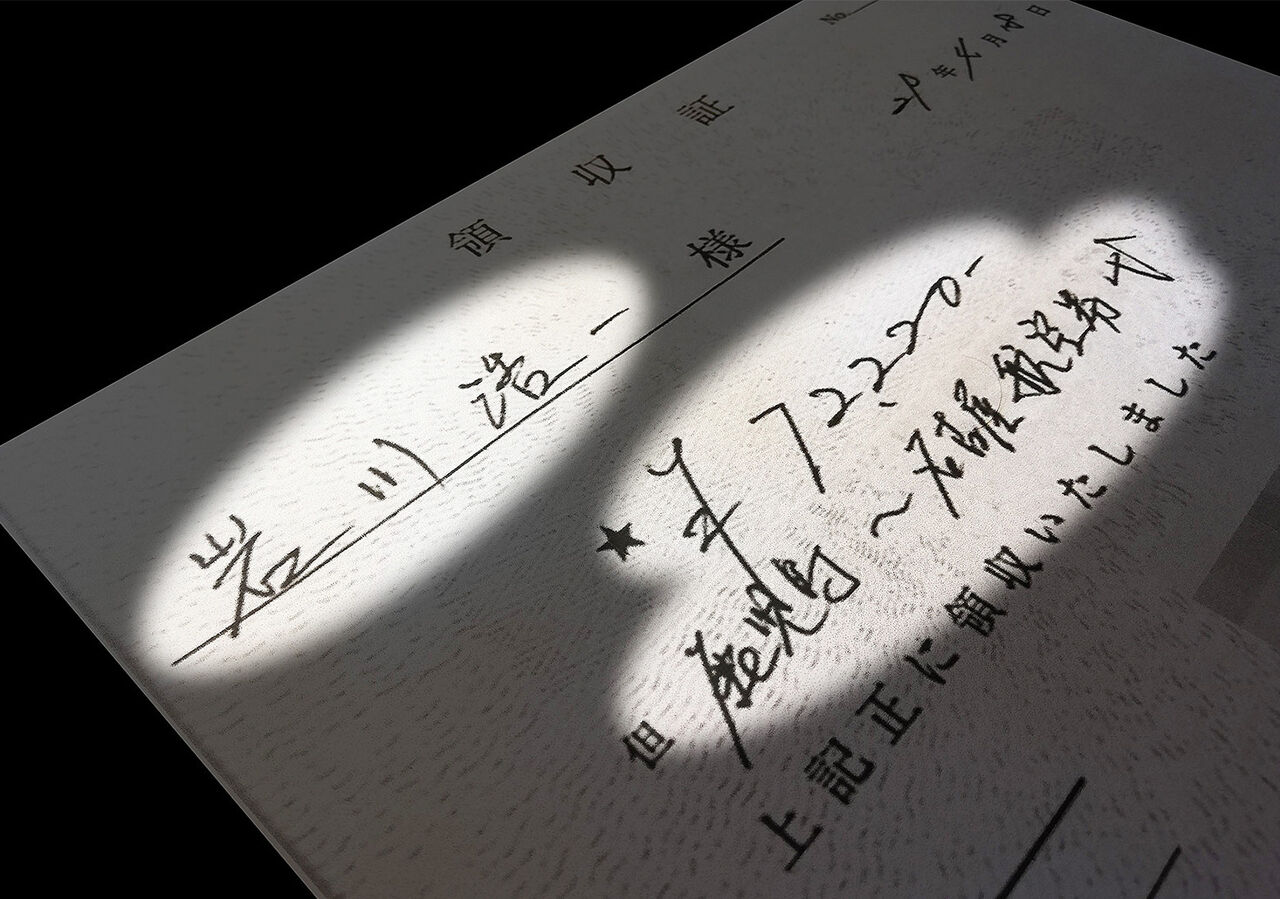 No.
29年4月 日
領収証
岩川浩一 様
★ ¥72,220-
但 鹿児島~名古屋航空券代
上記正に領収いたしました